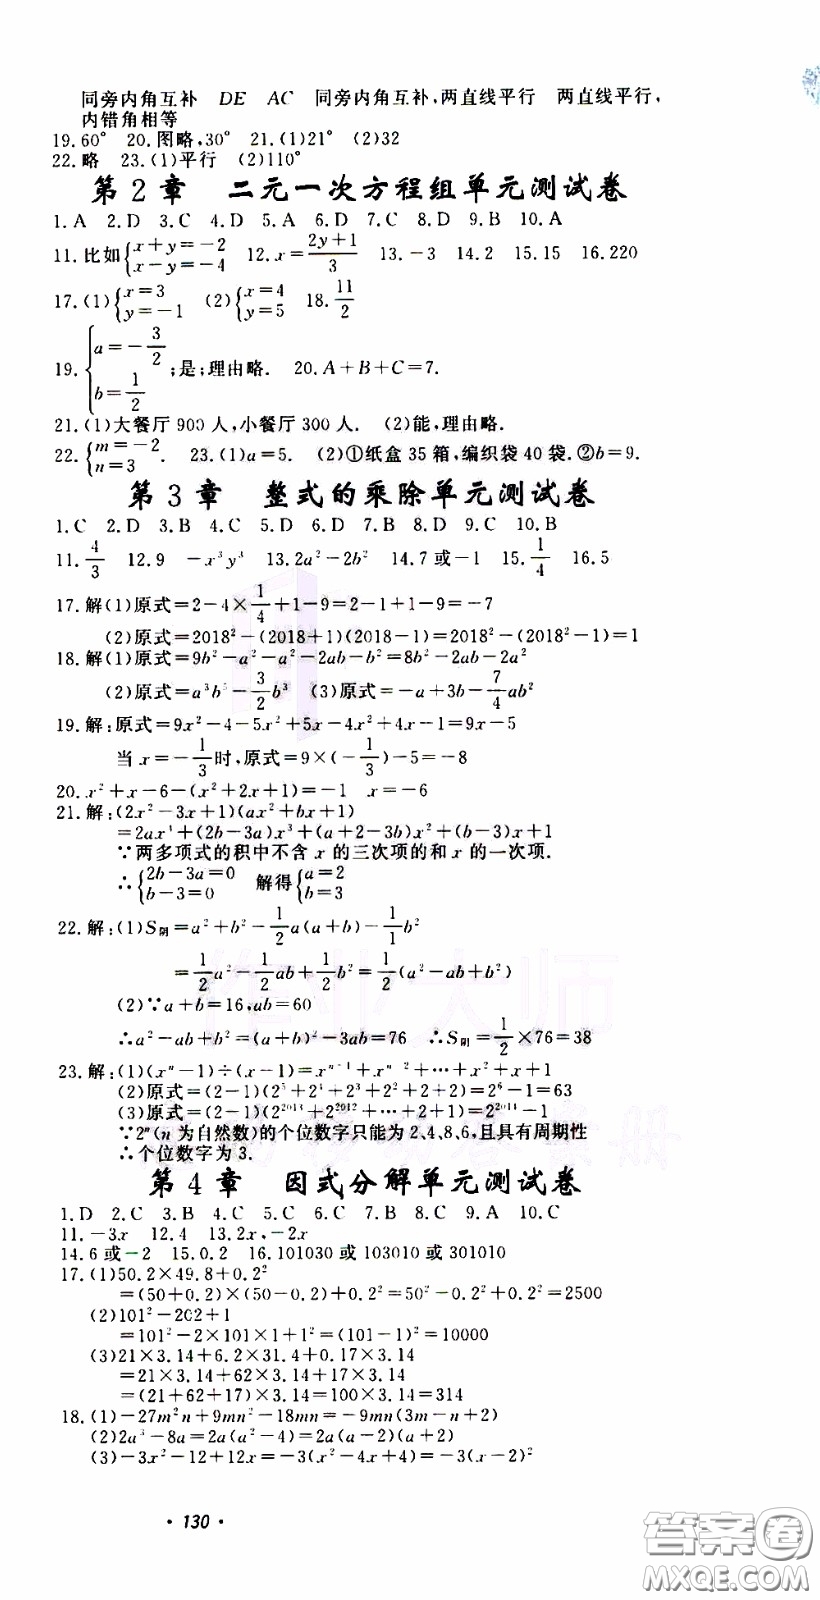 同旁内角互补 DE AC 同旁内角互补,两直线平行 两直线平行,
内错角相等
19.60° 20.图略,30° 21.(1)21° (2)32
22.略 23.(1)平行 (2)110°
第2章 二元一次方程组单元测试卷
1.A 2.D 3.C 4.D 5.A 6.D 7.C 8.D 9.B 10.A
11.比如{x+y=-2 x-y=-4 12.x=(2y+1)/3 13.-3 14.2 15.15 16.220
17.(1){x=3 y=-1 (2){x=4 y=5 18.11/2
19.{a=-3/2 b=1/2 ;是;理由略. 20.A+B+C=7.
21.(1)大餐厅900人,小餐厅300人. (2)能,理由略.
22.{m=-2 n=3. 23.(1)a=5. (2)①纸盒35箱,编织袋40袋.②b=9.
第3章 整式的乘除单元测试卷
1.C 2.D 3.B 4.C 5.D 6.D 7.B 8.D 9.C 10.B
11.4/3 12.9 -x³y³ 13.2a²-2b² 14.7或-1 15.1/4 16.5
17.解(1)原式=2-4×1/4+1-9=2-1+1-9=-7
(2)原式=2018²-(2018+1)(2018-1)=2018²-(2018²-1)=1
18.解(1)原式=9b²-a²-a²-2ab-b²=8b²-2ab-2a²
(2)原式=a³b⁵-3/2b³ (3)原式=-a+3b-7/4ab²
19.解:原式=9x²-4-5x²+5x-4x²+4x-1=9x-5
当x=-1/3时,原式=9×(-1/3)-5=-8
20.x²+x-6-(x²+2x+1)=-1 x=-6
21.解:(2x²-3x+1)(ax²+bx+1)
=2ax⁴+(2b-3a)x³+(a+2-3b)x²+(b-3)x+1
∵两多项式的积中不含x的三次项的和x的一次项.
∴{2b-3a=0 b-3=0 解得{a=2 b=3
22.解:(1)S阴=a²+b²-1/2a(a+b)-1/1b²
=1/2a²-1/2ab+1/2b²=1/2(a²-ab+b²)
(2)∵a+b=16,ab=60
∴a²-ab+b²=(a+b)²-3ab=76 ∴S阴=1/2×76=38
23.解:(1)(xⁿ-1)÷(x-1)=xⁿ⁻¹+xⁿ⁻²+…+x²+x+1
(2)原式=(2-1)(2⁵+2⁴+2³+2²+2+2)=2⁶-1=63
(3)原式=(2-1)(2²⁰¹³+2²⁰¹²+…+2+1)=2²⁰¹⁴-1
∵2ⁿ(n为自然数)的个位数字只能为2,4,8,6,且具有周期性
∴个位数字为3.
第4章 因式分解单元测试卷
1.D 2.C 3.B 4.C 5.C 6.D 7.B 8.C 9.A 10.C
11.-3x 12.4 13.2x,-2x
14.6或-2 15.0.2 16.101030或103010或301010
17.(1)50.2×49.8+0.2²
=(50+0.2)×(50-0.2)+0.2²=50²-0.2²+0.2²=2500
(2)101²-202+1
=101²-2×101×1+1²=(101-1)²=10000
(3)21×3.14+6.2×31.4+0.17×3.14
=21×3.14+62×3.14+17×3.14
=(21+62+17)×3.14=100×3.14=314
18.(1)-27m²n+9mn²-18mn=-9mn(3m-n+2)
(2)2a³-8a=2a(a²-4)=2a(a-2)(a+2)
(3)-3x²-12+12x=-3(x²-4x+4)=-3(x-2)²
· 130 ·
答案圈
MXQE.COM